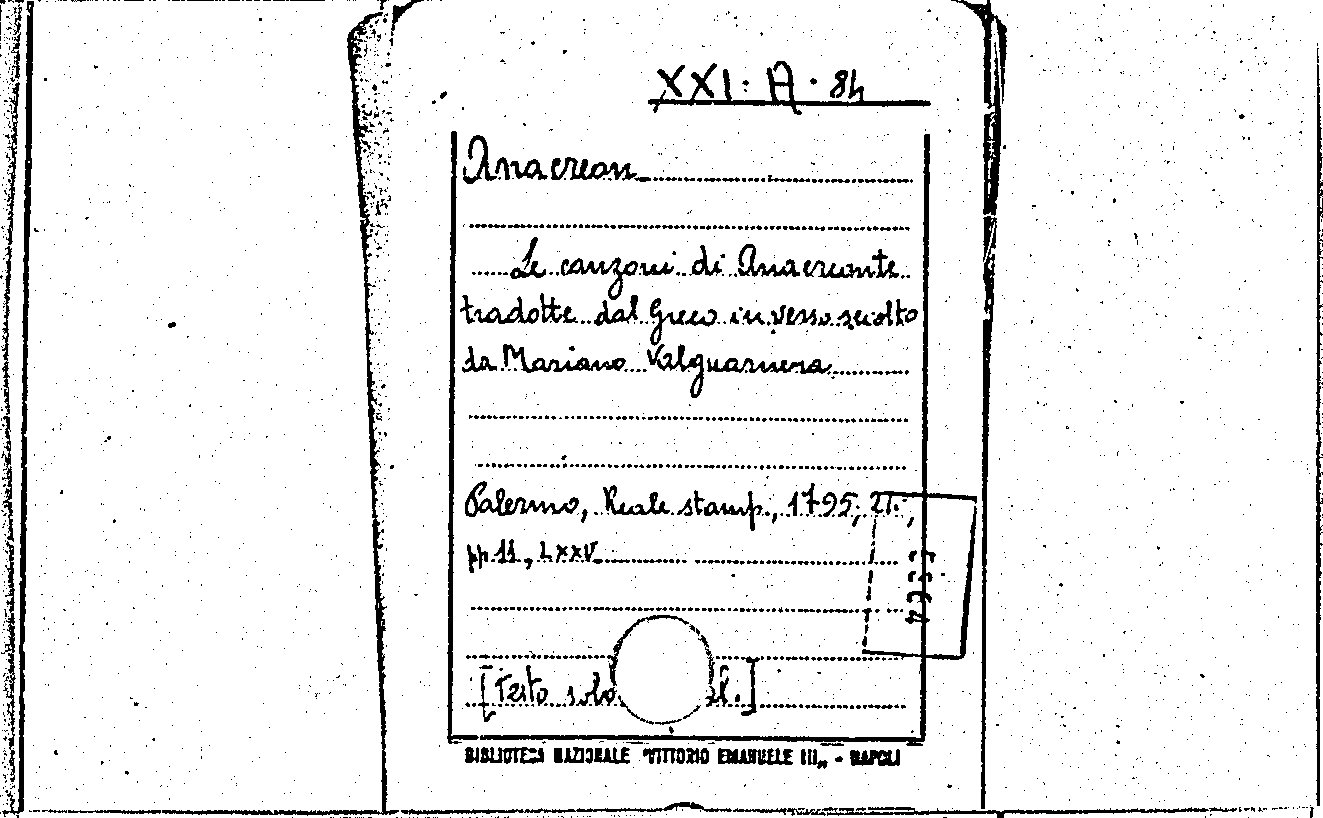 XXI. A. 84
Anacreon
Le canzoni di Anacreonte
tradotte dal Greco in verso sciolto
da Mariano Valguarnera
Palermo, Reale stamp., 1795, 2t.,
pp 11, LXXV
[Testo solo l.]
BIBLIOTECA NAZIONALE "VITTORIO EMANUELE III„ - NAPOLI